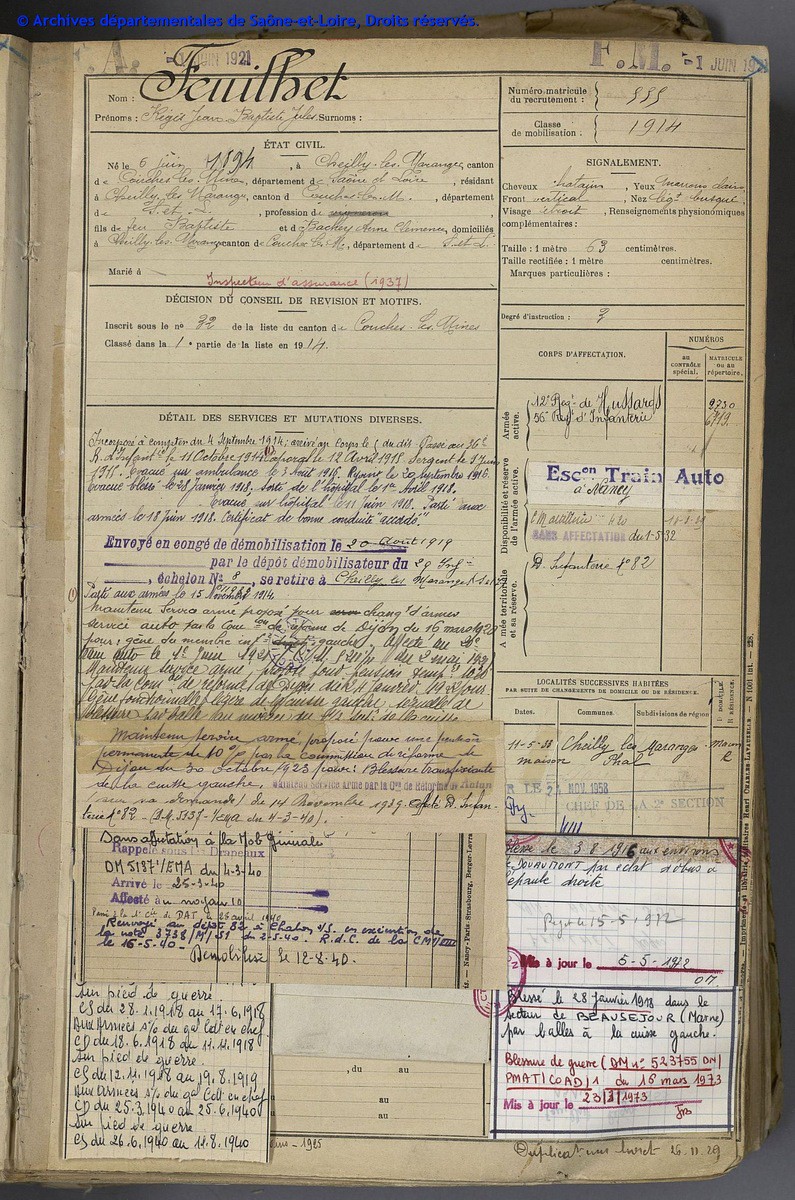 © Archives départementales de Saône-et-Loire, Droits réservés.
1 JUIN 1921
F. M. 1 JUIN
Nom : Feuilhet
Prénoms : Régis Jean Baptiste Jules Surnoms :
Numéro matricule du recrutement : 555
Classe de mobilisation : 1914
ÉTAT CIVIL.
Né le 6 juin 1894, à Cheilly-les-Maranges, canton
de Couches-les-Mines, département de Saône et Loire, résidant
à Cheilly les Maranges, canton de Couches les M., département
de S. et L., profession de
fils de feu Baptiste et de Bachey Anne Clémence, domiciliés
à Cheilly les Maranges canton de Couches les M., département de S. et L.
Marié à
Inspecteur d'assurance (1937)
SIGNALEMENT.
Cheveux chatains, Yeux marrons clairs
Front vertical, Nez légt busqué
Visage étroit, Renseignements physionomiques
complémentaires :
Taille : 1 mètre 63 centimètres.
Taille rectifiée : 1 mètre centimètres.
Marques particulières :
DÉCISION DU CONSEIL DE REVISION ET MOTIFS.
Inscrit sous le no 32 de la liste du canton de Couches-les-Mines
Classé dans la 1e partie de la liste en 1914.
Degré d'instruction : 3
CORPS D'AFFECTATION.
NUMÉROS
au CONTRÔLE spécial.
MATRICULE ou au répertoire.
Armée active.
12e Regt de Hussards 9730
56e Regt d'Infanterie 6719
Disponibilité et réserve de l'armée active.
Escon Train Auto
à Nancy
SANS AFFECTATION du 1-5-32
Armée territoriale et sa réserve.
D. Infanterie no 82
DÉTAIL DES SERVICES ET MUTATIONS DIVERSES.
Incorporé à compter du 4 Septembre 1914; arrivé au Corps le (du dit. Passé au 56e
R. d'Infantie le 11 Octobre 1914 Caporal le 12 Avril 1915 Sergent le 9 Juin
1915. Evacué sur ambulance le 3 Août 1916. Rejoint le 20 Septembre 1916.
Evacué blessé le 28 Janvier 1918. Sorti de l'hôpital le 1er Avril 1918.
Evacué sur hôpital le 11 juin 1918. Parti aux
armées le 18 juin 1918. Certificat de bonne conduite "accordé"
Envoyé en congé de démobilisation le 20 Août 1919
par le dépôt démobilisateur du 29 Infie
, échelon No 8, se retire à Cheilly les Maranges
(1) Parti aux armées le 15 Novembre 1914
Maintenu Service armé proposé pour changt d'armes
service auto par la Con de réforme de Dijon du 16 mars 1920
pour : gêne du membre inf gauche; affecté au
Train auto le 1er
Maintenu service armé proposé pour pension temp. 10%
par la Com. de réforme de Dijon du 4 Janvier 1922 pour
gêne fonctionnelle légère de la cuisse gauche, séquelle de
blessure par balle au niveau du 1/3 sup. de la cuisse
Maintenu service armé proposé pour une pension
permanente de 10% par la commission de réforme de
Dijon du 30 octobre 1923 pour : Blessure transfixiante
de la cuisse gauche. Maintenu service armé par la Con de Réforme de Autun
(sur sa demande) le 14 Novembre 1939. Affecté D. Infan-
terie no 82 - (D.M. 5137-/EMA du 4-3-40).
Sans affectation à la Mob Générale
Rappelé sous les Drapeaux
DM 5137/EMA du 4-3-40
Arrivé le 25-3-40
Affecté au noyau 10
Passé à la 1e Cie de PAT, le 26 avril 1940
Renvoyé au dépôt 82 à Chalon s/S. en exécution de
la note 3738/M/ST du 2-5-40. R.d.C. de la CM/VIII
le 16-5-40.
Démobilisé le 12-8-40.
LOCALITÉS SUCCESSIVES HABITÉES
PAR SUITE DE CHANGEMENTS DE DOMICILE OU DE RÉSIDENCE.
Dates. Communes. Subdivisions de région D. DOMICILE. R. RÉSIDENCE.
11-5-38 Cheilly les Maranges Macon
maison Phal
NOV. 1958
CHEF DE LA 2e SECTION
Blessé le 3.8.1916 aux environs
de DOUAUMONT par éclat d'obus à
l'épaule droite
15-5-1972
Mis à jour le 5-5-1972
Blessé le 28 janvier 1918 dans le
secteur de BEAUSEJOUR (Marne)
par balles à la cuisse gauche.
Blessure de guerre (DM no 523755 DN/
PMAT/COAD/1 du 16 mars 1973
Mis à jour le 23/3/1973
Sur pied de guerre
CS du 28.1.1918 au 17.6.1918
Aux Armées s/s du gal Cdt en chef
CD du 18.6.1918 au 11.11.1918
Sur pied de guerre.
CS du 12.11.1918 au 19.8.1919
Aux Armées s/s du gal Cdt en chef
CD du 25.3.1940 au 25.6.1940
Sur pied de guerre
CS du 26.6.1940 au 11.8.1940
, du au
au
au
Duplicata au livret 26.11.29
Nancy-Paris-Strasbourg, Berger-Levra
Imprimerie et librairie militaires Henri CHARLES-LAVAUZELLE. — N 1001 int. —